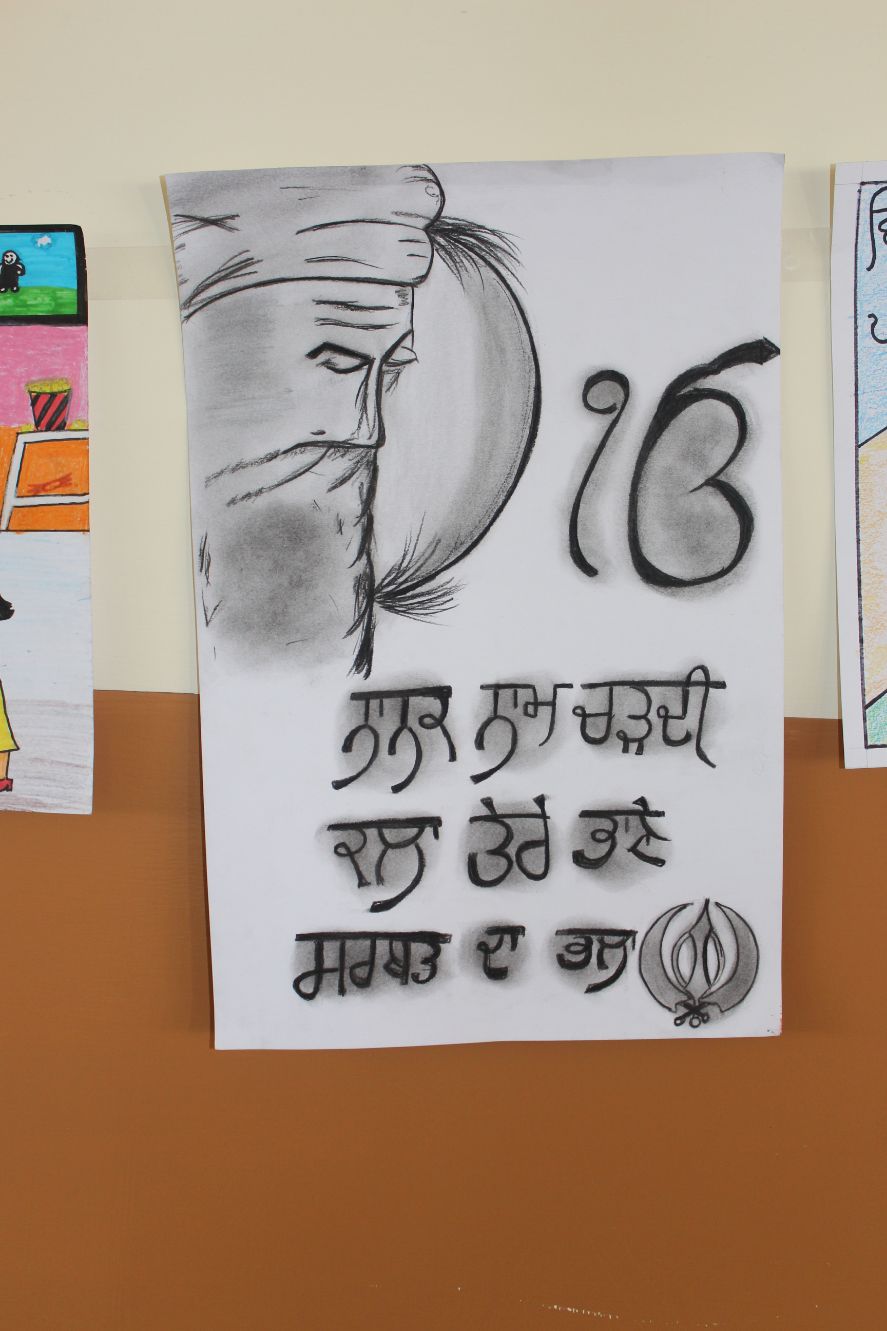 ੴ
ਨਾਨਕ ਨਾਮ ਚੜਦੀ
ਕਲਾ ਤੇਰੇ ਭਾਣੇ
ਸਰਬਤ ਦਾ ਭਲਾ